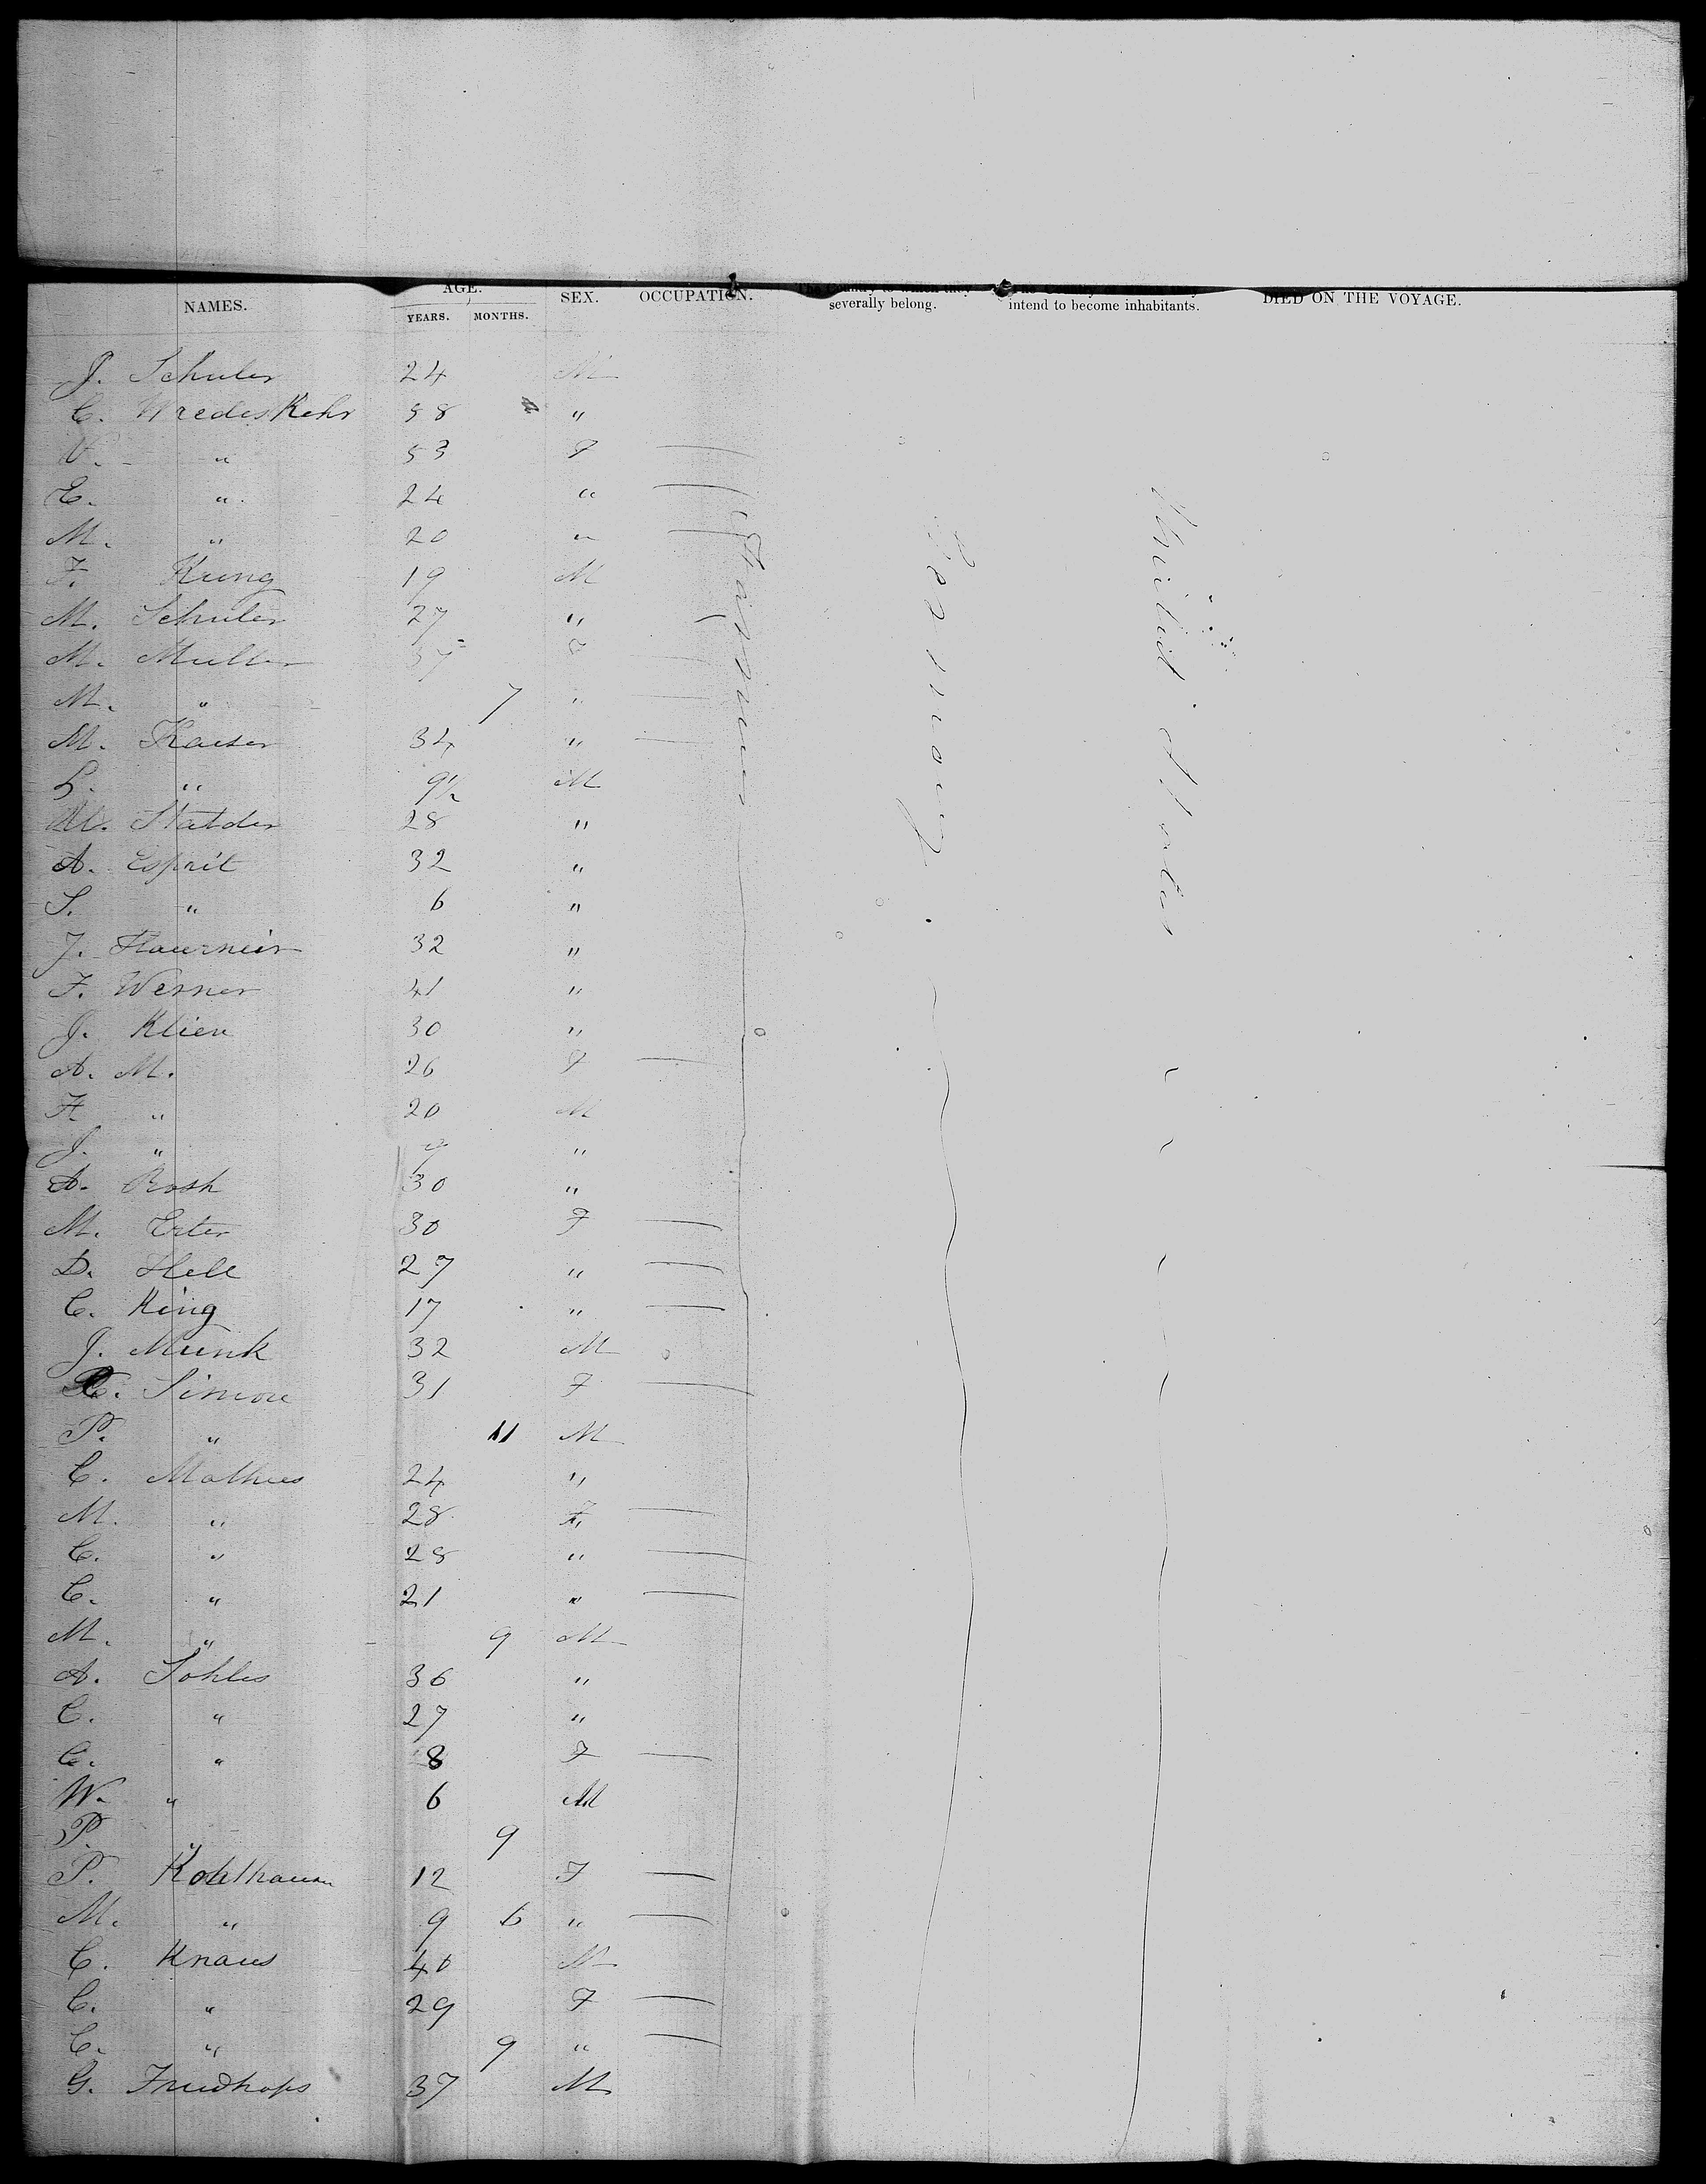 NAMES. AGE. SEX. OCCUPATION. The Country to which they severally belong. intend to become inhabitants. DIED ON THE VOYAGE.
YEARS. MONTHS.
J. Schuler 24 M
C. Wredeskehr 58 "
V. " 53 F —
E. " 24 " —
M. " 20 " —
F. Kung 19 M
M. Schuler 27 "
M. Muller 37 F —
M. " 7 " —
M. Kaiser 34 " —
" 9½ M
Statder 28 "
A. Esprit 32 "
S. " 6 "
J. Flaurneir 32 "
F. Werner 41 "
J. Klien 30 "
A. M. 26 F —
F. " 20 M
J. " 9 "
A. Rosh 30 "
M. Erter 30 F —
D. Hell 27 " —
C. King 17 " —
J. Munk 32 M
Simon 31 F —
P. " 11 M
C. Mathies 24 "
M. " 28 F —
C. " 28 " —
C. " 21 " —
M. " 9 M
A. Sohles 36 "
C. " 27 "
C. " 8 F —
W. " 6 M
P. " 9
P. Kohlhausen 12 F —
M. " 9 6 " —
C. Knaus 40 M
C. " 29 F —
C. " 9 " —
G. Fruidhops 37 M
Farmers
Germany
United States